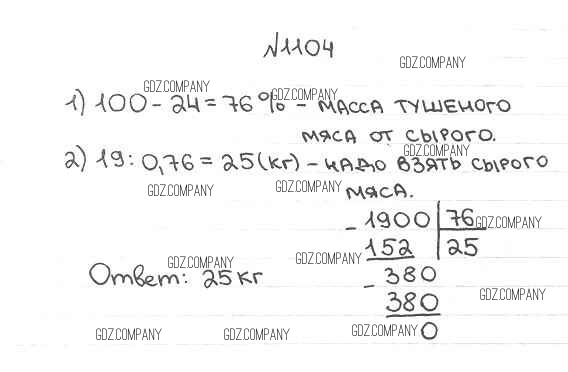 №1104
GDZ.COMPANY
GDZ.COMPANY
GDZ.COMPANY
1) 100 - 24 = 76% - масса тушеного
мяса от сырого.
GDZ.COMPANY
2) 19 : 0,76 = 25 (кг) - надо взять сырого
GDZ.COMPANY
GDZ.COMPANY
мяса.
- 1900 | 76
GDZ.COMPANY
152 25
GDZ.COMPANY
GDZ.COMPANY
Ответ: 25 кг
- 380
380
GDZ.COMPANY
0
GDZ.COMPANY
GDZ.COMPANY
GDZ.COMPANY